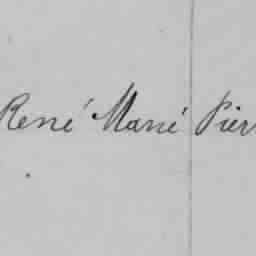 René Marié Pier